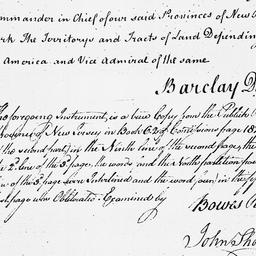 ommander in Chief of our said Provinces of New
ork The Territorys and Tracts of Land Depending
America and Vice Admiral of the same
Barclay D
foregoing Instrument, is a true Copy from the Publick
of New Jersey in Book C2 of page 18
the second part) in the Ninth line of the second page, the
the 2d line of the 3d page, the words and the Ninth partition
of the 3d page were Interlined and the word four) in the
page was Obliterated. Examined by
Bowes
John Sho